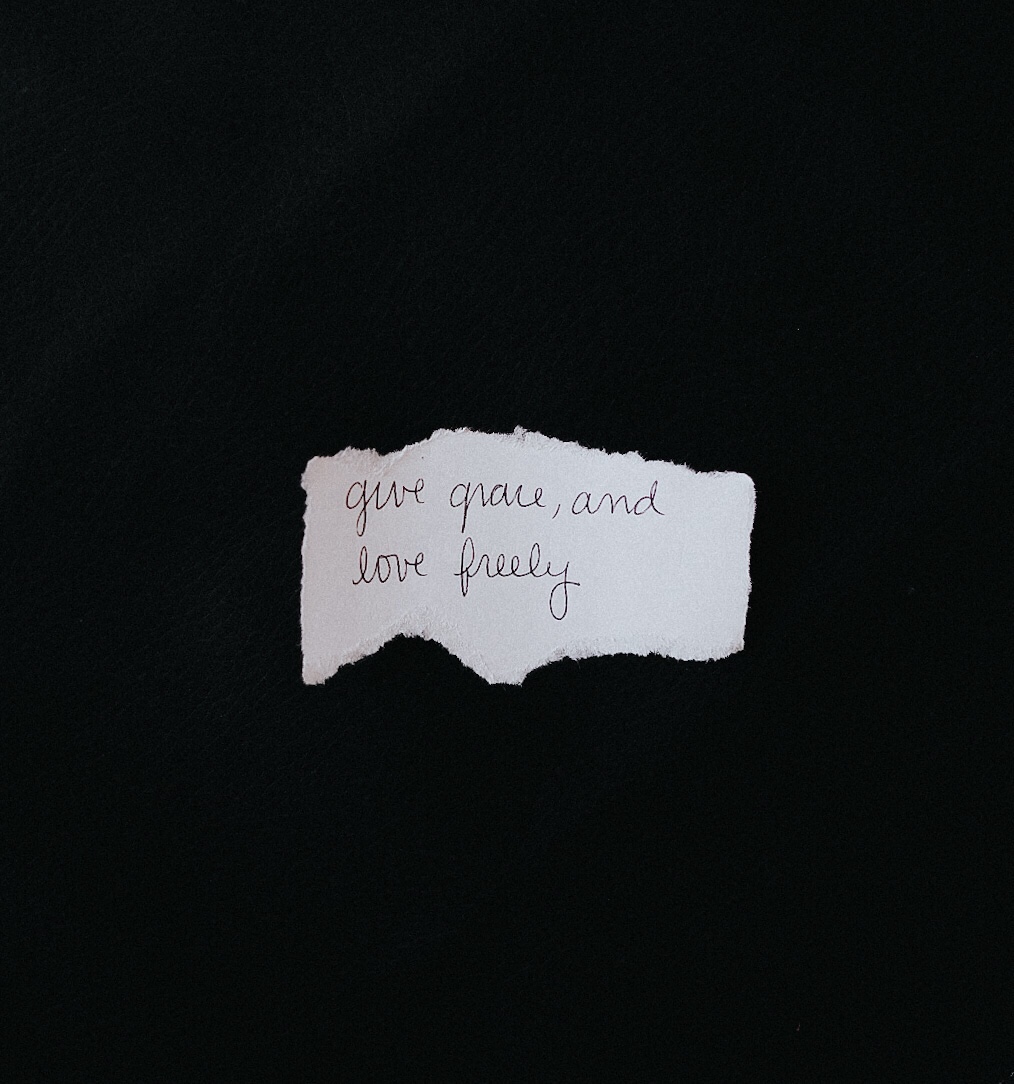 give grace, and
love freely